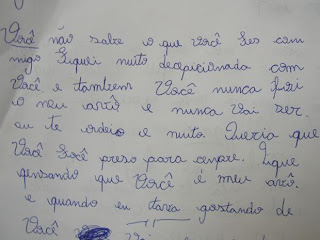 Você não sabe o que você fes com
migo Fiquei muito decepicionada com
Você e tambem Você nunca foi
o meu avô e nunca vai ser.
eu te odeio e muito. Queria que
Você fosé preso para sempre. Fique
pensando que Você é meu avô.
e quando eu tava gostando de
Você